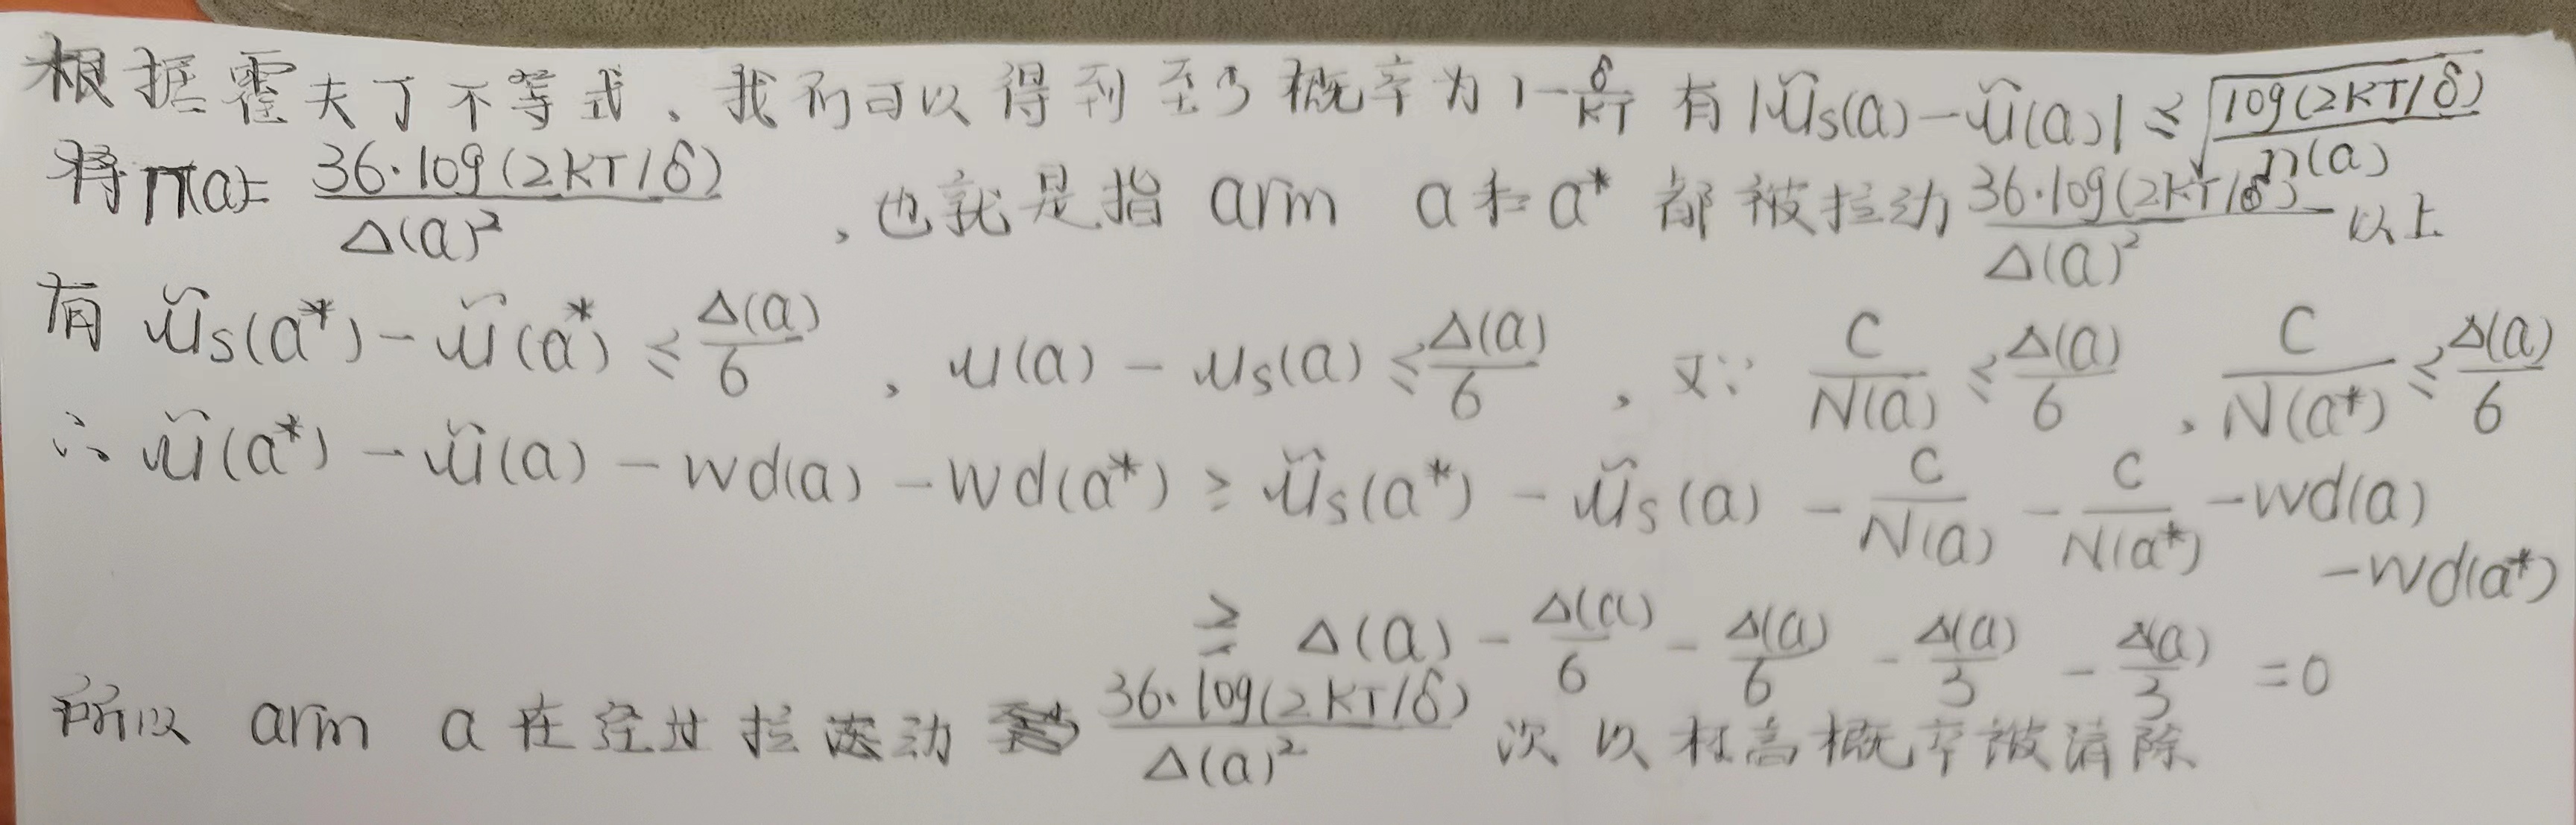 根据霍夫丁不等式、我们可以得到至少概率为 1-δ/KT 有 |ũs(a)-ũ(a)| ≤ √(log(2KT/δ)/n(a))
将n(a)= 36·log(2KT/δ)/Δ(a)² ,也就是指 arm a和a* 都被拉动 36·log(2KT/δ)/Δ(a)² 以上
有 ũs(a*)-ũ(a*) ≤ Δ(a)/6 , u(a)-us(a) ≤ Δ(a)/6 , 又∵ C/N(a) ≤ Δ(a)/6 , C/N(a*) ≤ Δ(a)/6
∴ ũ(a*)-ũ(a)-wd(a)-wd(a*) ≥ ũs(a*)-ũs(a)-C/N(a)-C/N(a*)-wd(a)
-wd(a*)
≥ Δ(a)-Δ(a)/6-Δ(a)/6-Δ(a)/3-Δ(a)/3=0
所以 arm a 在经过拉动 36·log(2KT/δ)/Δ(a)² 次以极高概率被消除